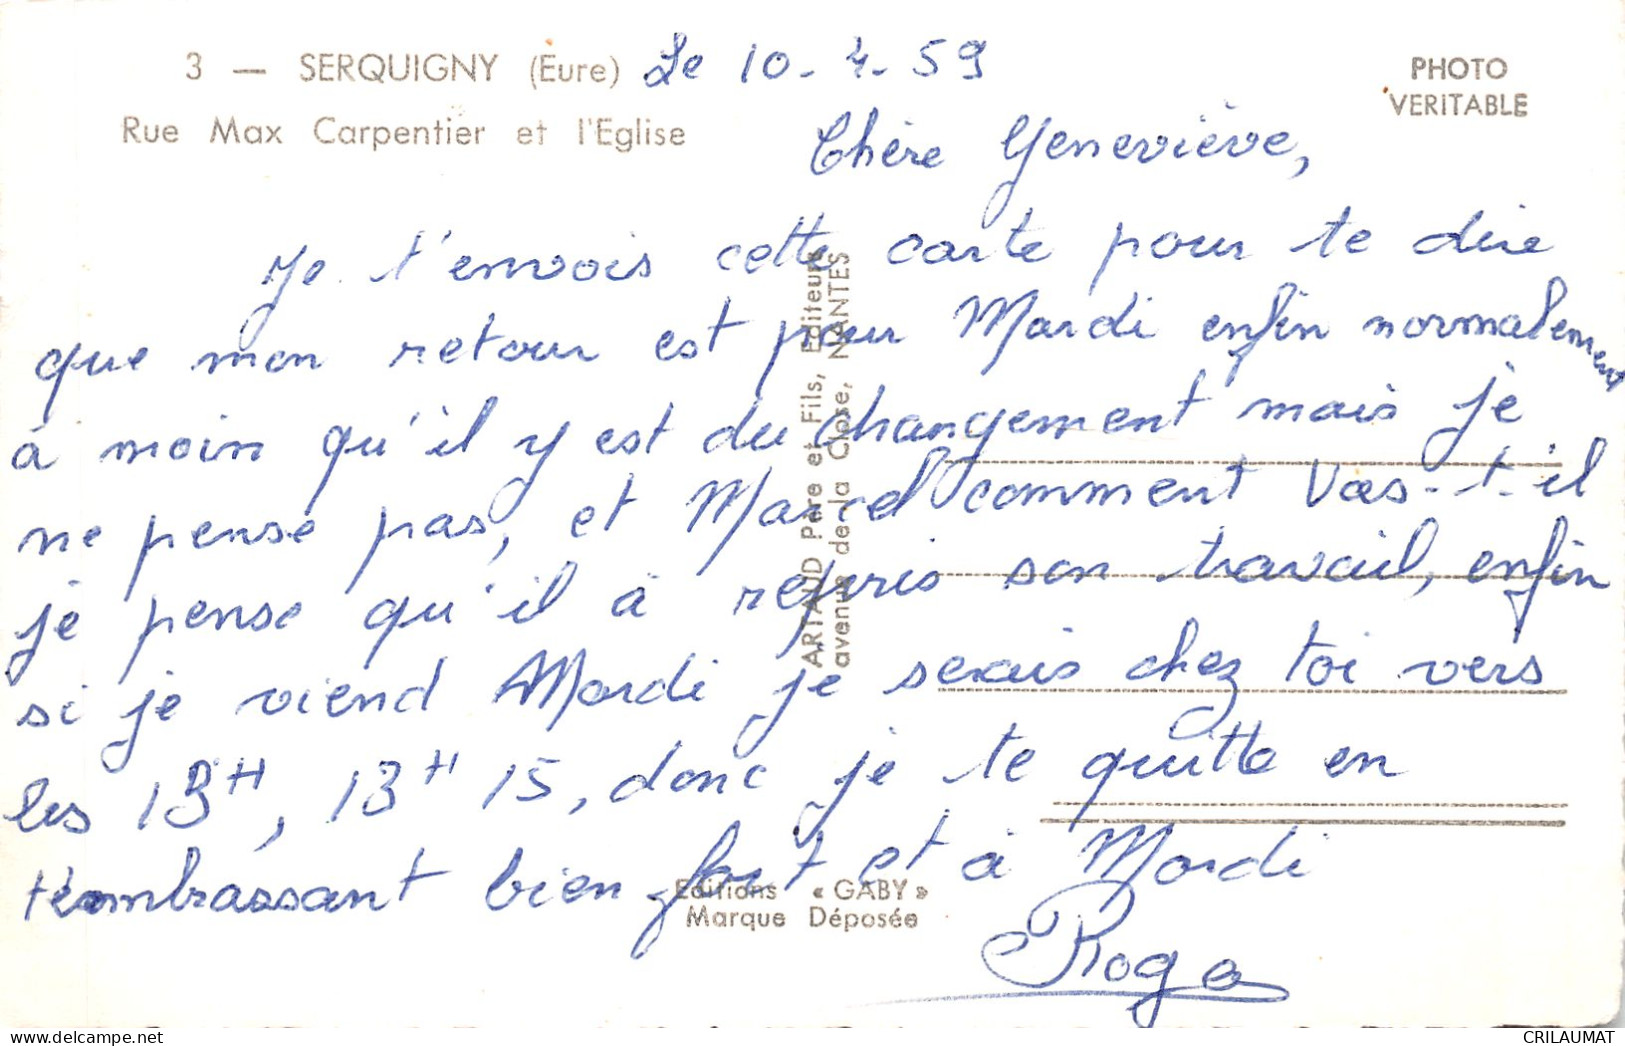 3 — SERQUIGNY (Eure) Le 10-4-59
Rue Max Carpentier et l'Eglise
PHOTO
VERITABLE
Chère Geneviève,
Je t'envois cette carte pour te dire
que mon retour est pour Mardi enfin normalement
à moin qu'il y est du changement mais je
ne pense pas, et Marcel comment Vas-t-il
je pense qu'il à repris son travail, enfin
si je viend Mardi je serais chez toi vers
les 13H, 13H 15, donc je te quitte en
t'embrassant bien fort et à Mardi
Roger
ARTAUD Père et Fils, Editeurs
avenue de la Close, NANTES
Editions « GABY »
Marque Déposée
CRILAUMAT